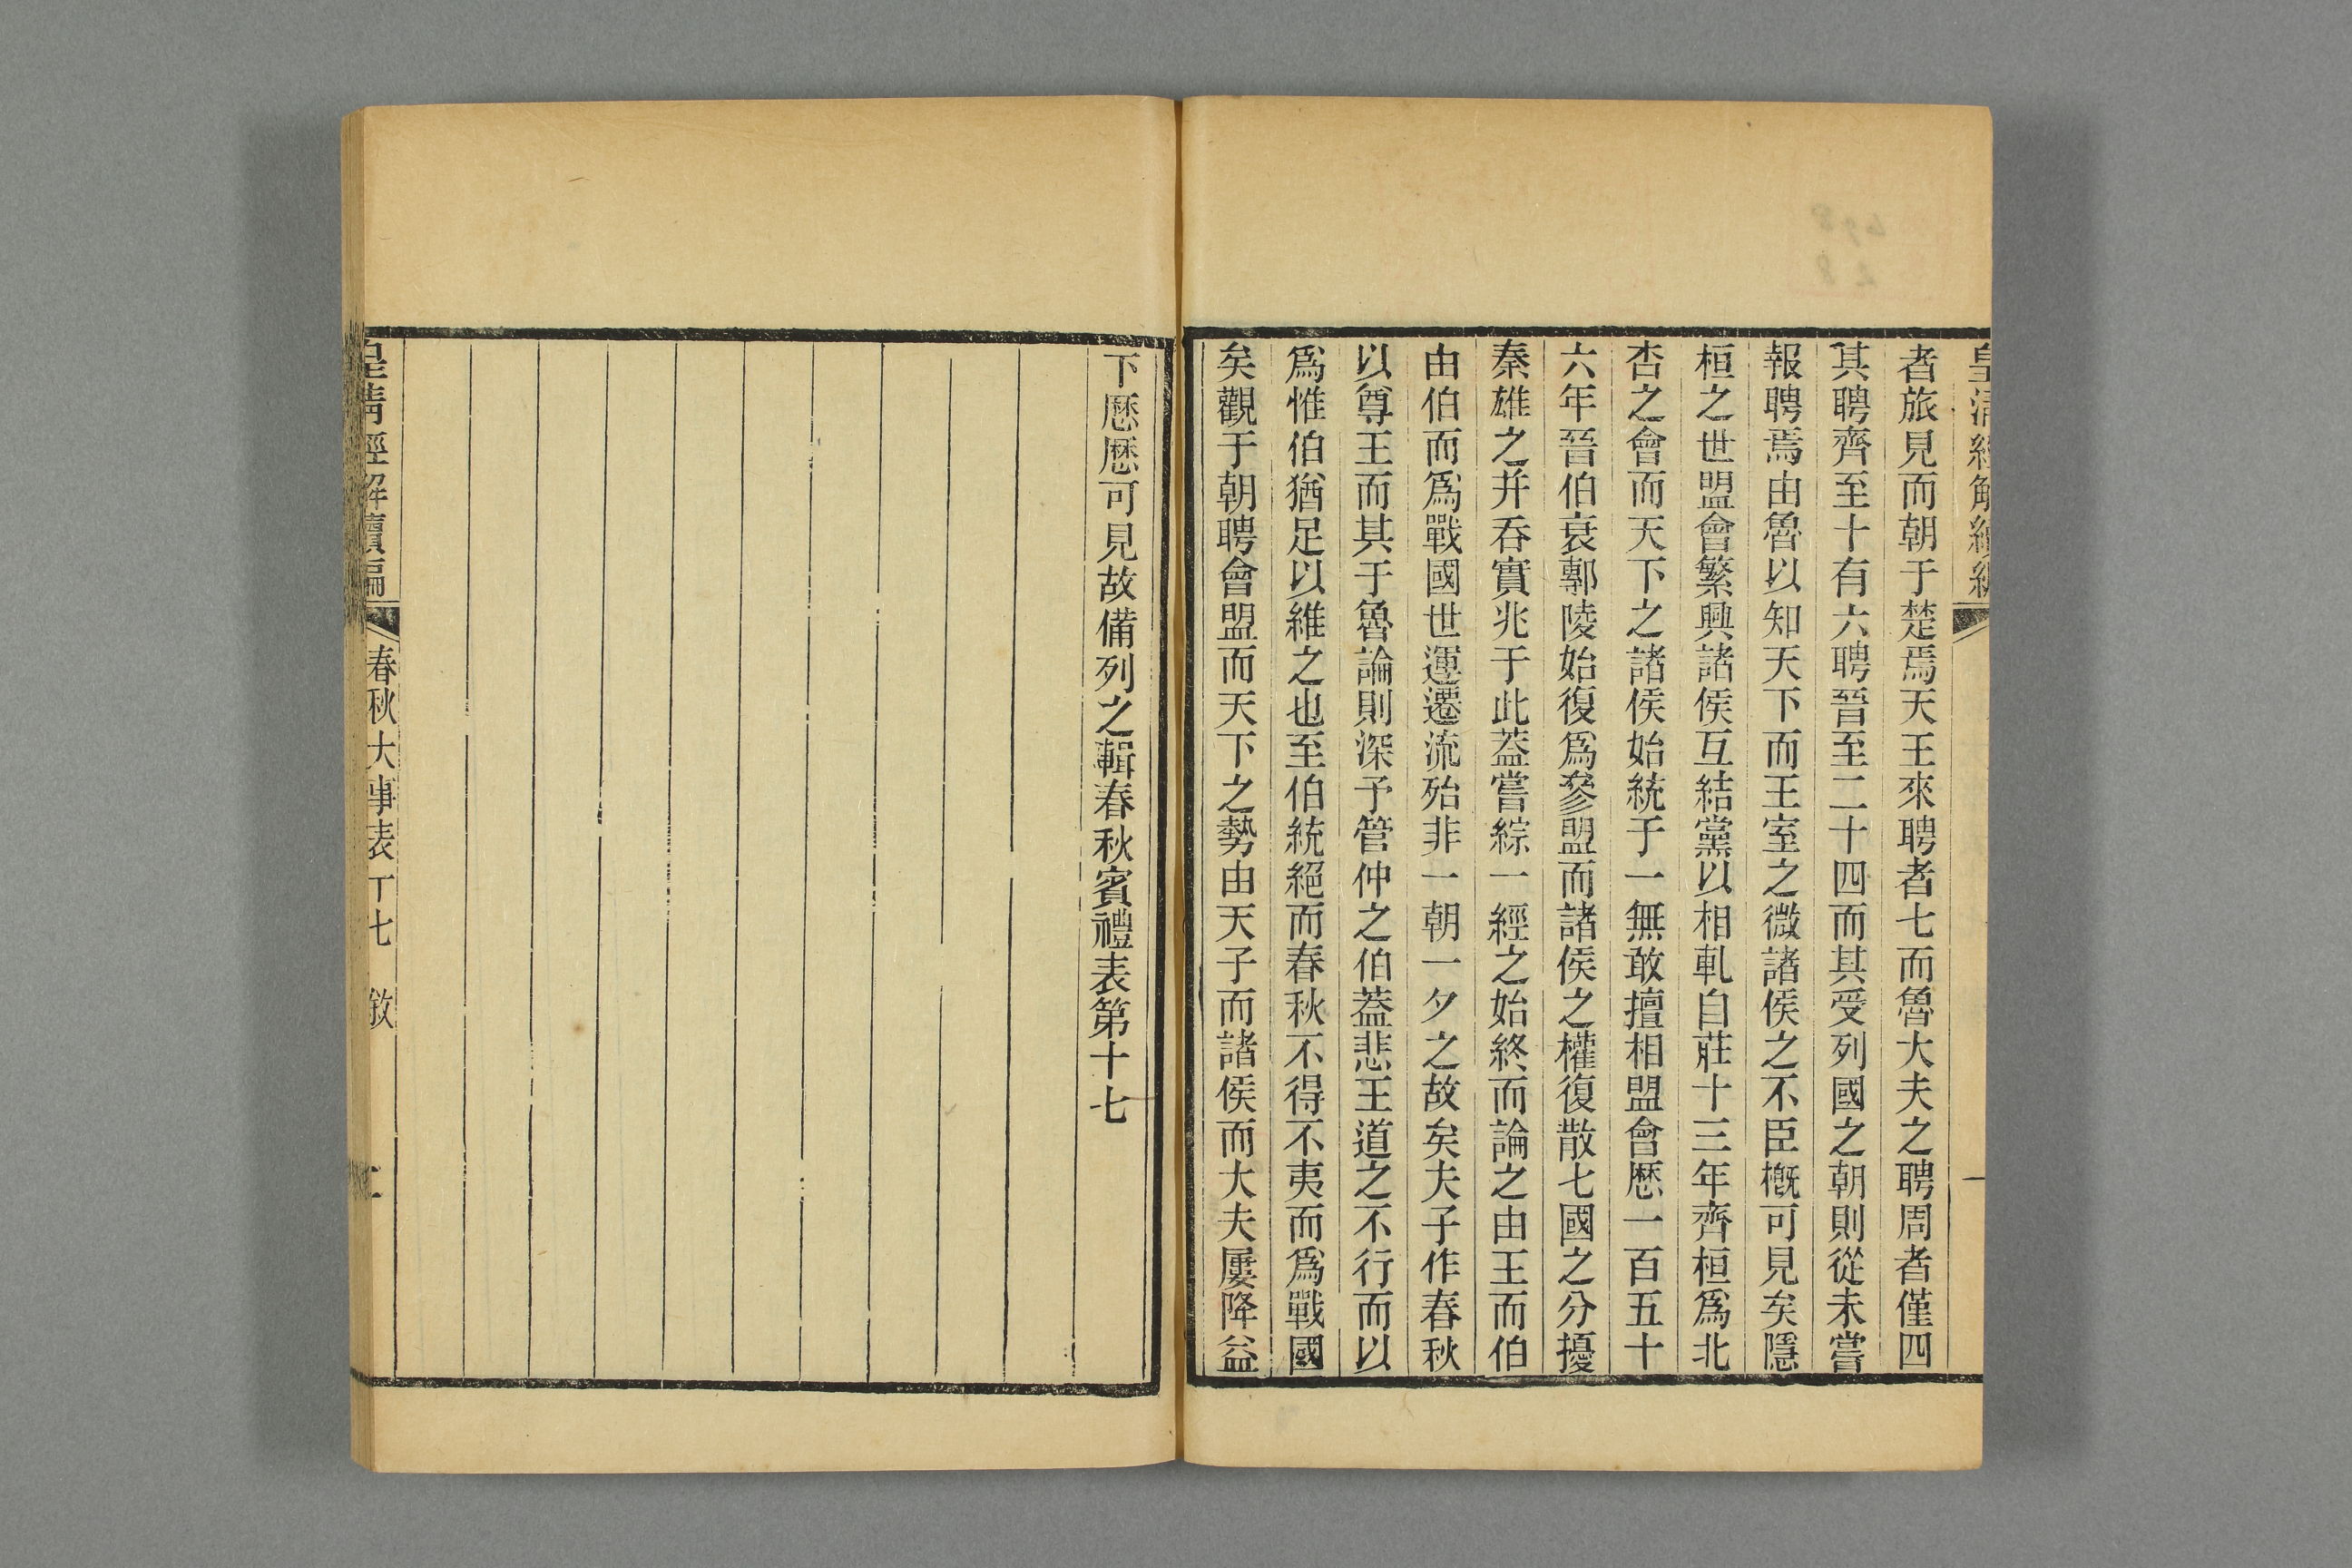 皇清經解續編
一
者旅見而朝于楚焉天王來聘者七而魯大夫之聘周者僅四
其聘齊至十有六聘晉至二十四而其受列國之朝則從未嘗
報聘焉由魯以知天下而王室之微諸侯之不臣槪可見矣隱
桓之世盟會繁興諸侯互結黨以相軋自莊十三年齊桓爲北
杏之會而天下之諸侯始統于一無敢擅相盟會歷一百五十
六年晉伯衰鄟陵始復爲參盟而諸侯之權復散七國之分擾
秦雄之并吞實兆于此葢嘗綜一經之始終而論之由王而伯
由伯而爲戰國世運遷流殆非一朝一夕之故矣夫子作春秋
以尊王而其于魯論則深予管仲之伯葢悲王道之不行而以
爲惟伯猶足以維之也至伯統絕而春秋不得不夷而爲戰國
矣觀于朝聘會盟而天下之勢由天子而諸侯而大夫屢降益
下歷歷可見故備列之輯春秋賓禮表第十七
皇清經解續編
春秋大事表十七 敘